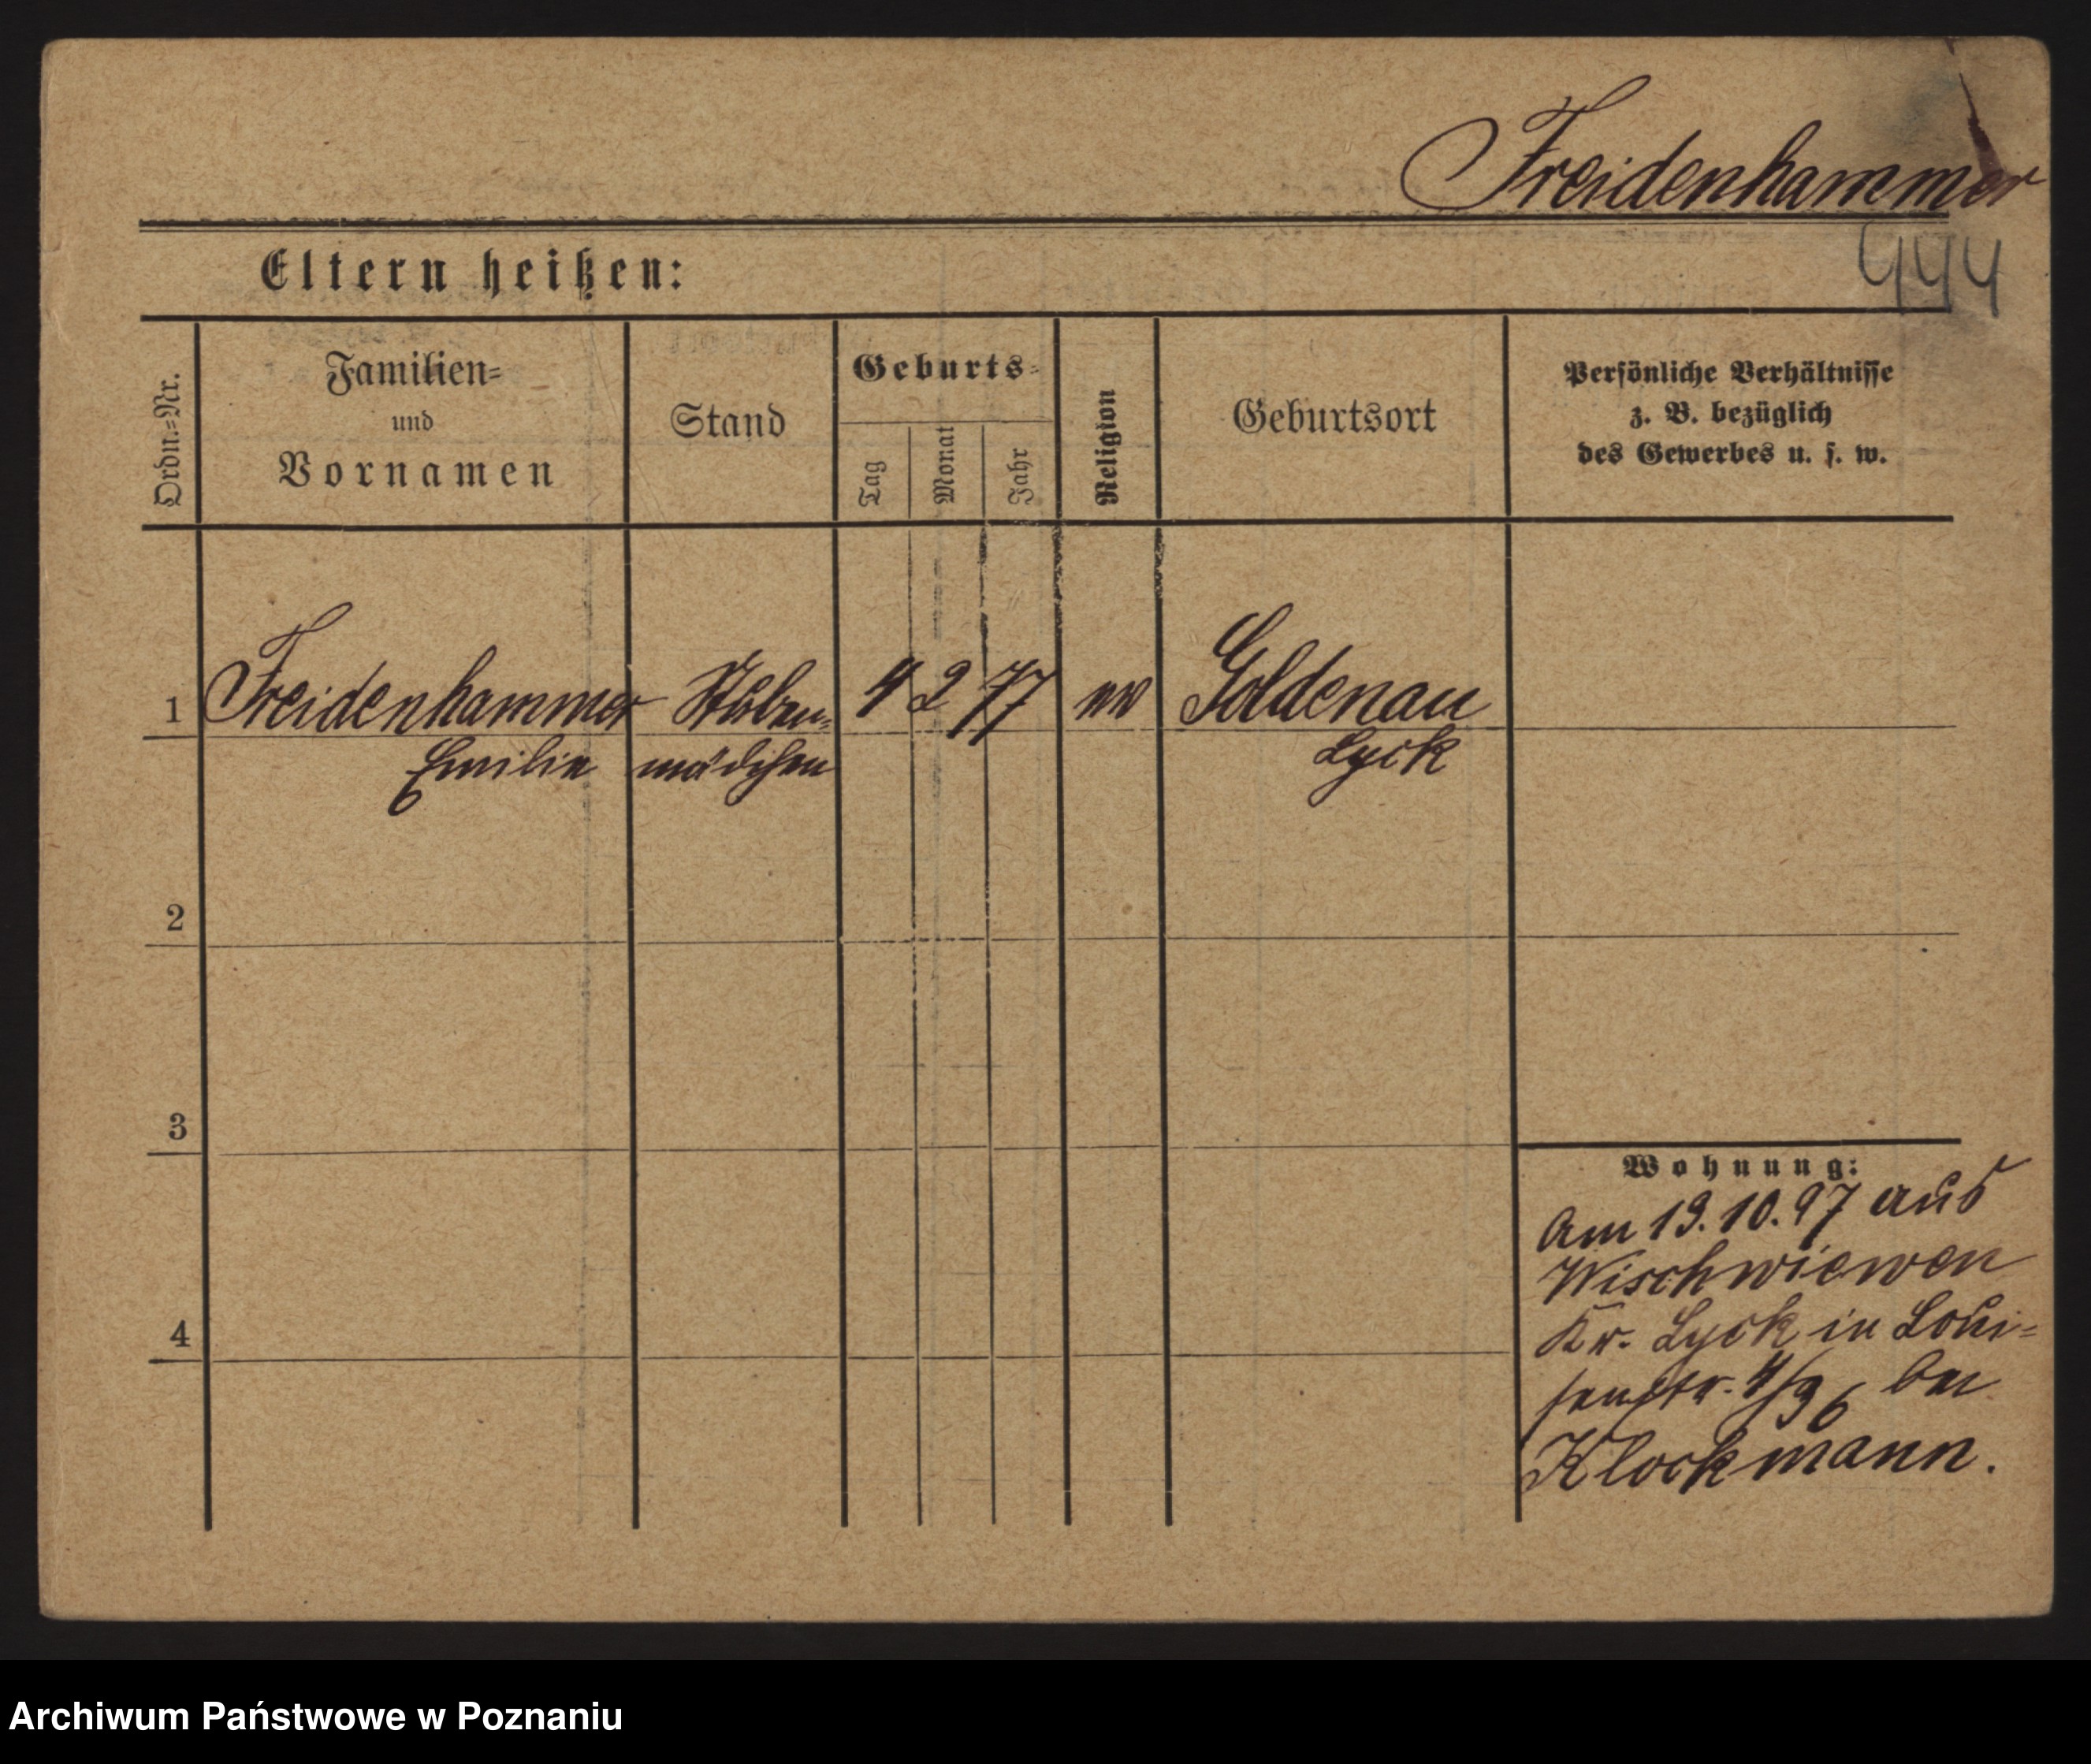 Freidenhammer
444
Eltern heißen:
Ordn.=Nr.
Familien=
und
Vornamen
Stand
Geburts=
Tag
Monat
Jahr
Religion
Geburtsort
Persönliche Verhältnisse
z. B. bezüglich
des Gewerbes u. s. w.
1 Freidenhammer Stuben= 4 2 77 ev Goldenau
Emilie mädchen Lyck
2
3
4
Wohnung:
Am 19.10.97 aus
Wischwiewen
Kr. Lyck in Loui=
senstr. 4/96 bei
Klockmann.
Archiwum Państwowe w Poznaniu